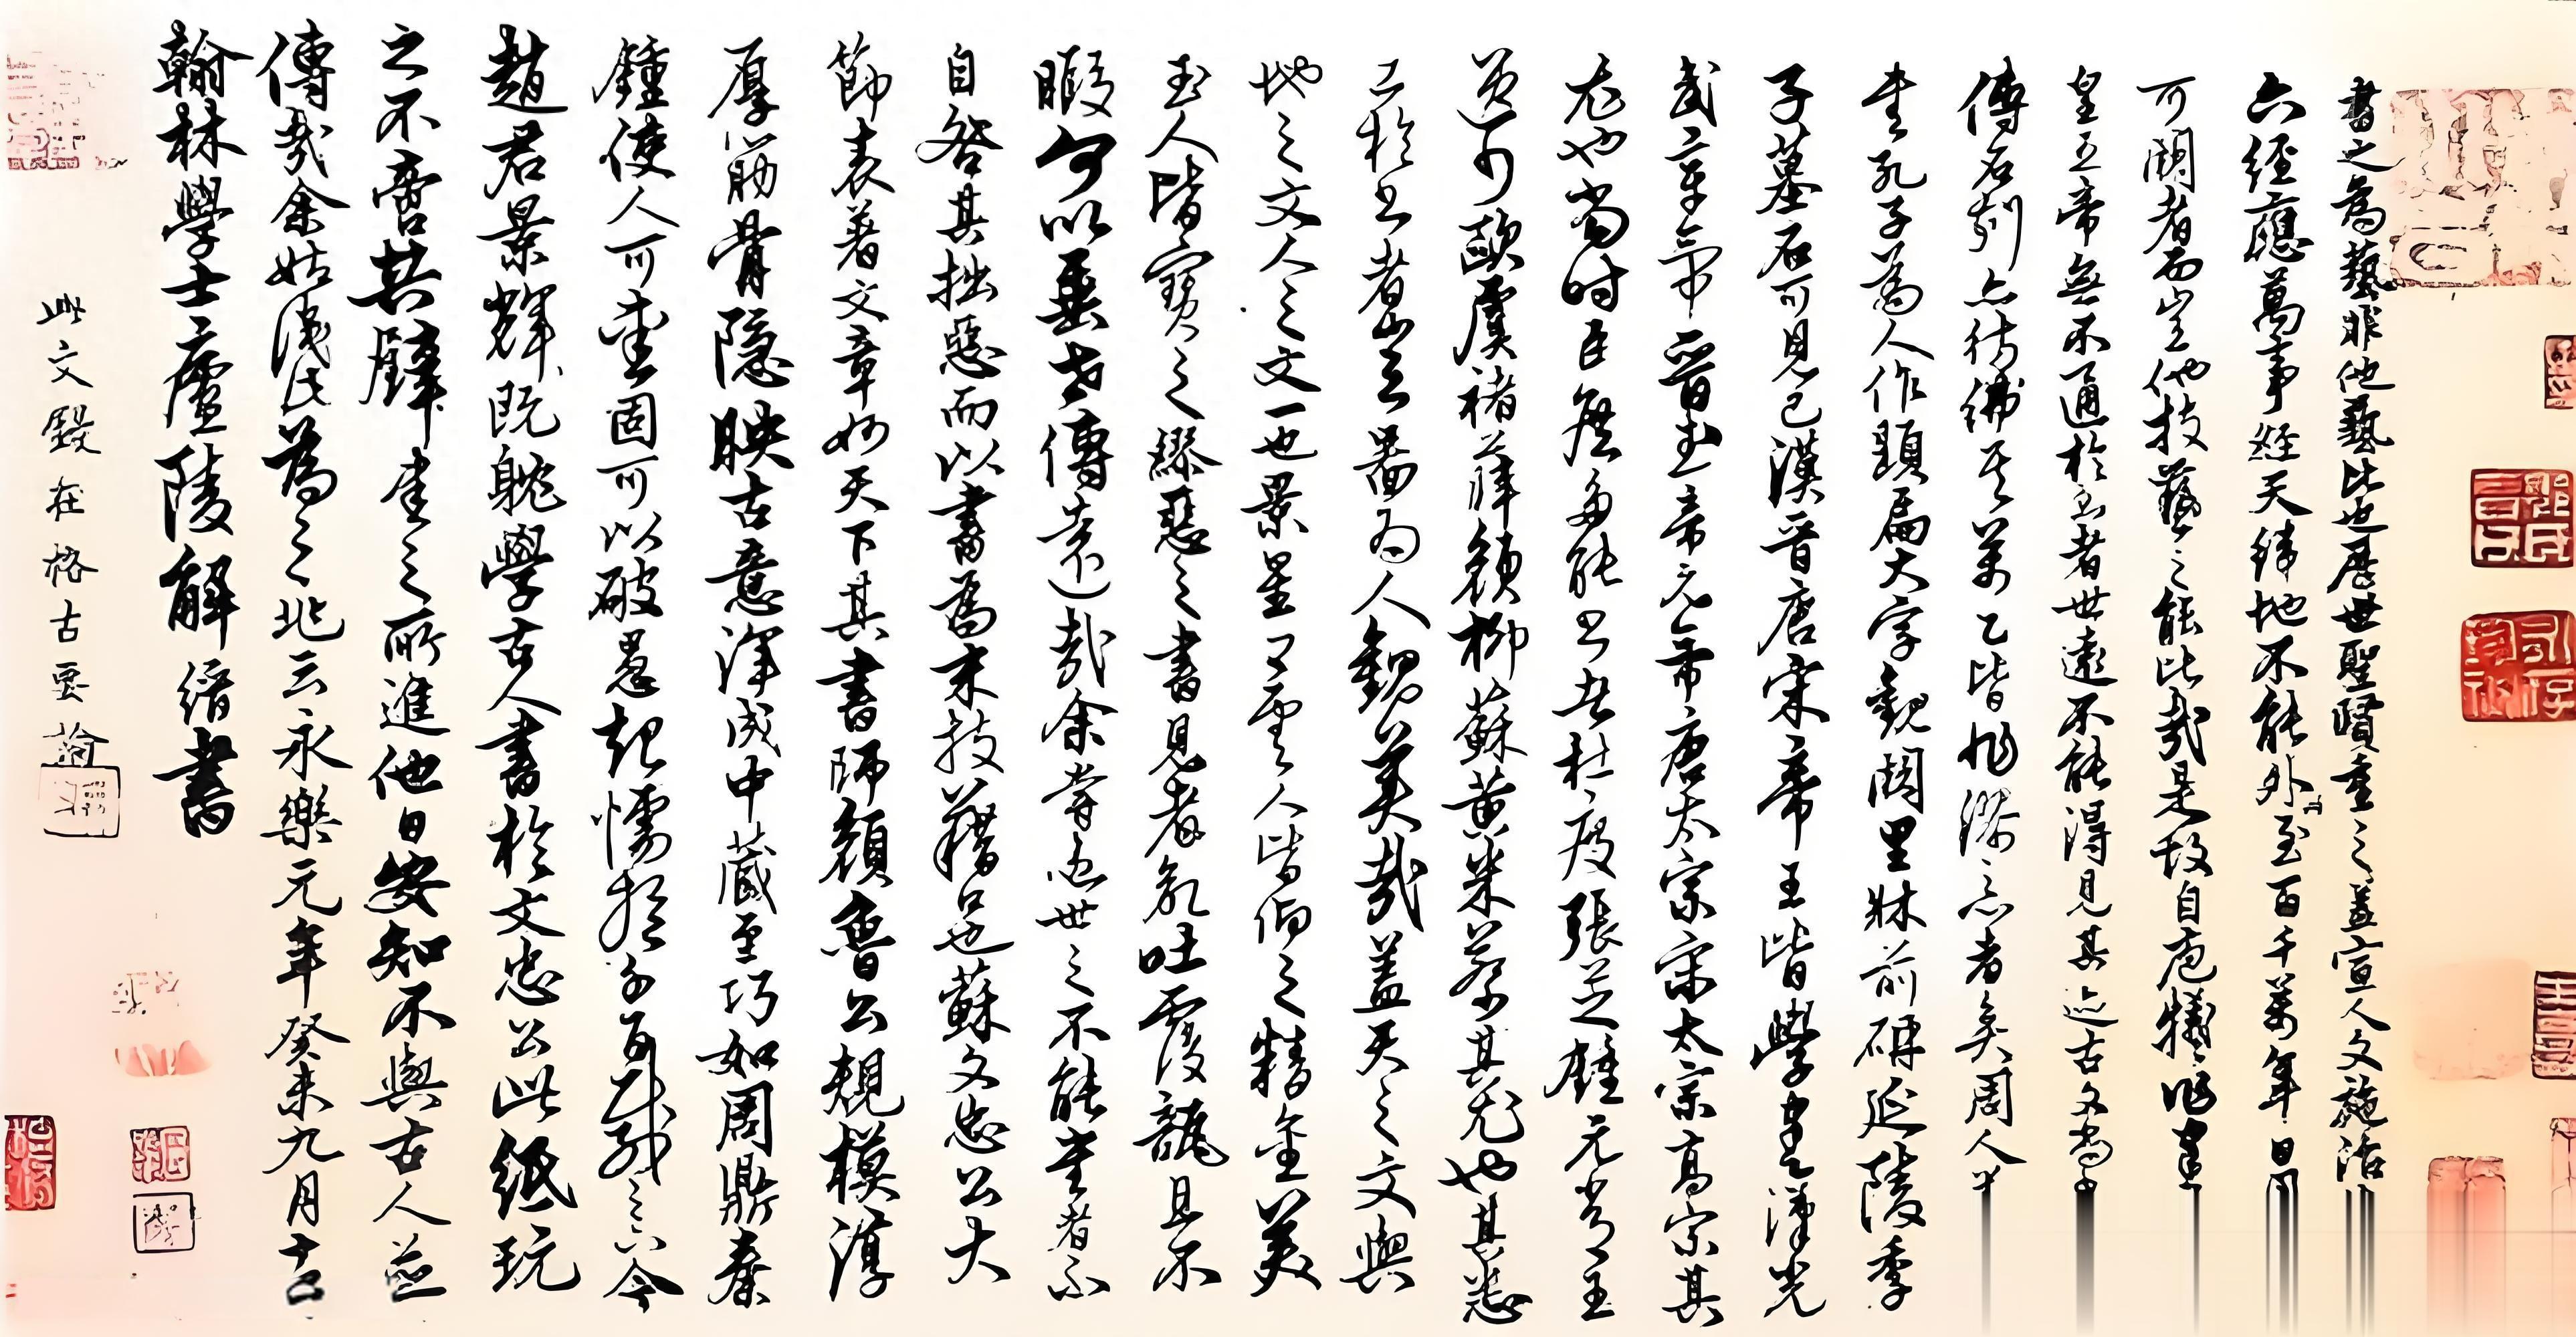 書之為藝非他藝比也歷世聖賢重之蓋宣人文施治
六經應萬事經天緯地不能外至百千萬年日用
可闕者而豈他技藝之能比哉是故自庖犧作書
皇五帝無不通於書者世遠不能得見其迹古文
傳石刻亦彷彿其萬乙皆非謬言者矣周人
書孔子為人作題扁大字觀闕里牀前碑延陵季
子墓石可見已漢晉唐宋帝王皆學書漢光
武章帝晉武帝元帝唐太宗宋太宗高宗其
尤也當時臣庶多能書者杜度張芝鍾元常二王
父子歐虞褚薛顏柳蘇黃米蔡其尤也其悉
工於書者豈不為人觀美哉蓋天之文與
地之文人之文一也景星卿雲人皆仰之精金美
玉人皆寶之繆惡之書見者氣吐覆瓿且不
暇何以垂世傳遠哉余嘗患世之不能書者不
自咎其拙惡而以書為末技藉口也蘇文忠公大
節表著文章妙天下其書師顏魯公規模淳
厚筋骨隱映古意渾成中藏至巧如周鼎秦
鍾使人可愛固可以破愚起懦於百載之下今
趙君景輝既能學古人書於文忠公此紙玩
之不啻共璧書之所進他日安知不與古人並
傳哉余姑識此為之兆云永樂元年癸未九月十六日
翰林學士廬陵解縉書
此文毀在格古要論